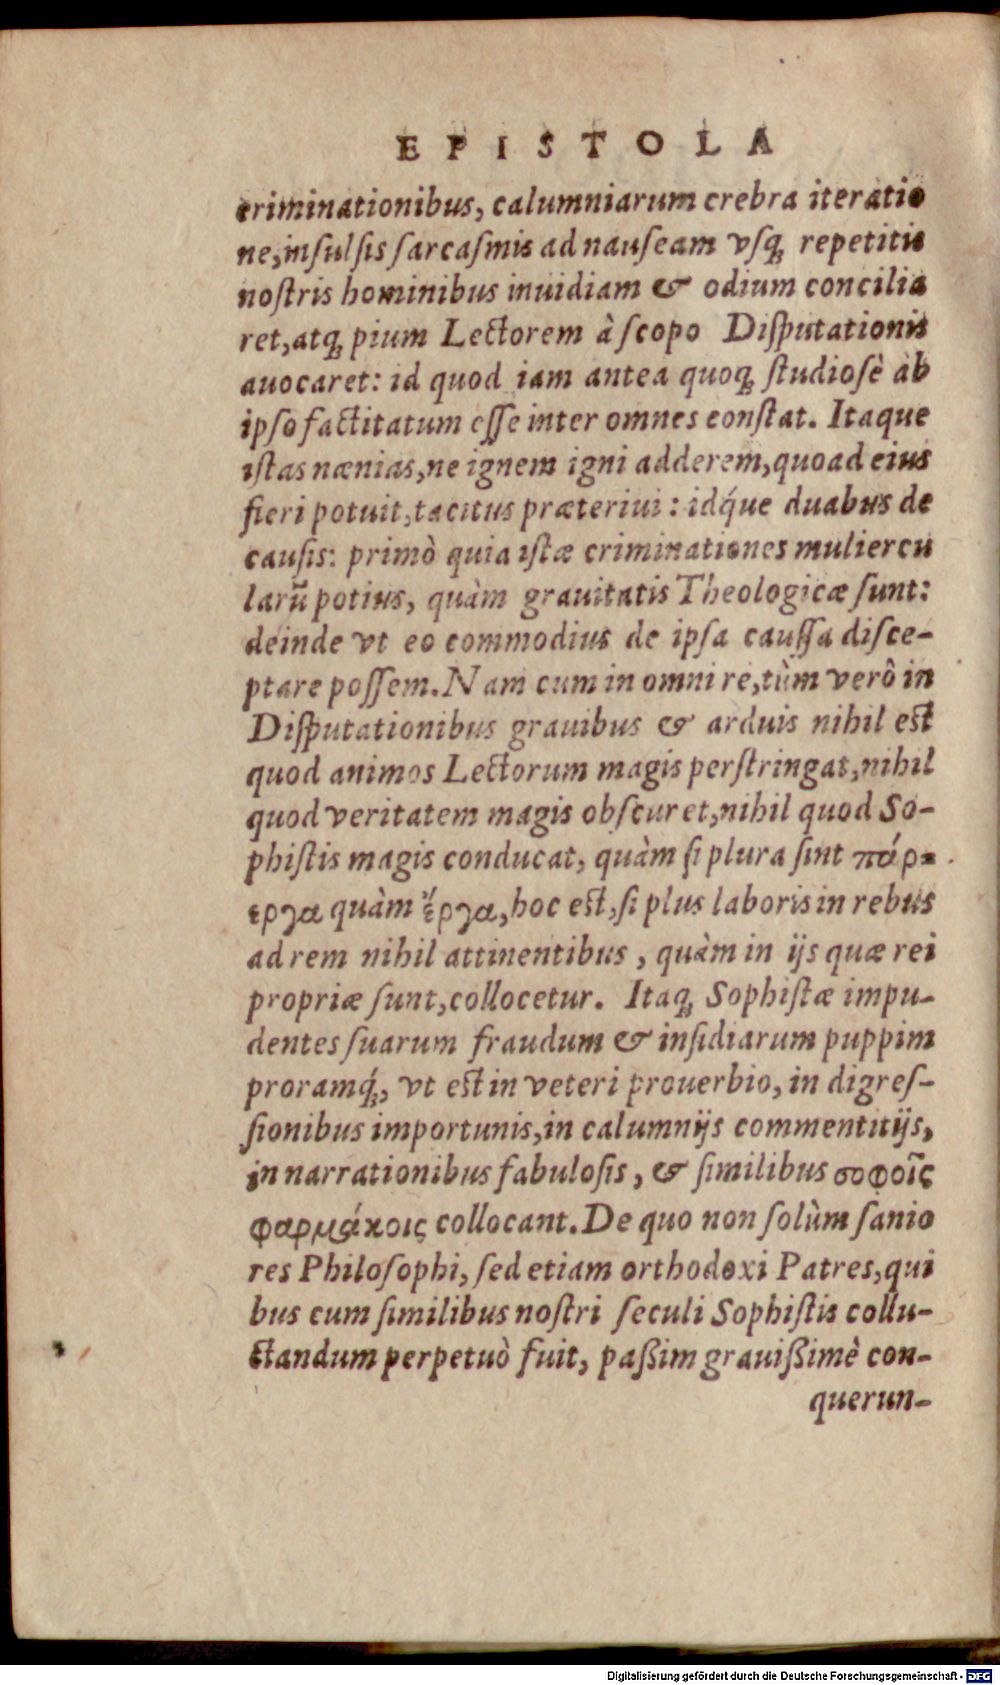 EPISTOLA
criminationibus, calumniarum crebra iteratio
ne, insulſis ſarcaſmis ad nauſeam vſq; repetitis
noſtris hominibus inuidiam & odium concilia
ret, atq; pium Lectorem à ſcopo Diſputationis
auocaret: id quod iam antea quoq; ſtudioſè ab
ipſo factitatum eſſe inter omnes conſtat. Itaque
iſtas nænias, ne ignem igni adderem, quoad eius
fieri potuit, tacitus præteriui: idq́ue duabus de
cauſis: primò quia iſtæ criminationes muliercu
larū potius, quàm grauitatis Theologicæ ſunt:
deinde vt eo commodius de ipſa cauſſa diſce-
ptare poſſem. Nam cum in omni re, tùm verò in
Diſputationibus grauibus & arduis nihil est
quod animos Lectorum magis perſtringat, nihil
quod veritatem magis obſcuret, nihil quod So-
phiſtis magis conducat, quàm ſi plura ſint πάρ-
εργα quàm ἔργα, hoc est, ſi plus laboris in rebus
ad rem nihil attinentibus, quàm in ijs quæ rei
propriæ ſunt, collocetur. Itaq; Sophiſtæ impu-
dentes ſuarum fraudum & inſidiarum puppim
proramq́;, vt est in veteri prouerbio, in digreſ-
ſionibus importunis, in calumnijs commentitijs,
in narrationibus fabuloſis, & ſimilibus σοφοῖς
φαρμάκοις collocant. De quo non ſolùm ſanio
res Philoſophi, ſed etiam orthodoxi Patres, qui
bus cum ſimilibus noſtri ſeculi Sophiſtis collu-
ctandum perpetuò fuit, paßim grauißimè con-
querun-
Digitalisierung gefördert durch die Deutsche Forschungsgemeinschaft - DFG